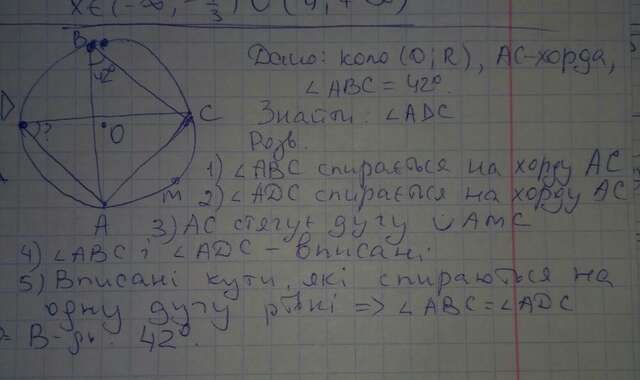 x∈(-∞; -1/3) ∪ (4; +∞)
B
42°
D
?
O
C
M
A
Дано: коло (O; R), AC-хорда,
∠ABC = 42°.
Знайти: ∠ADC
Розв.
1) ∠ABC спирається на хорду AC
2) ∠ADC спирається на хорду AC
3) AC стягує дугу ∪AMC
4) ∠ABC і ∠ADC – вписані
5) Вписані кути, які спираються на
одну дугу рівні => ∠ABC = ∠ADC
В-дь. 42°.